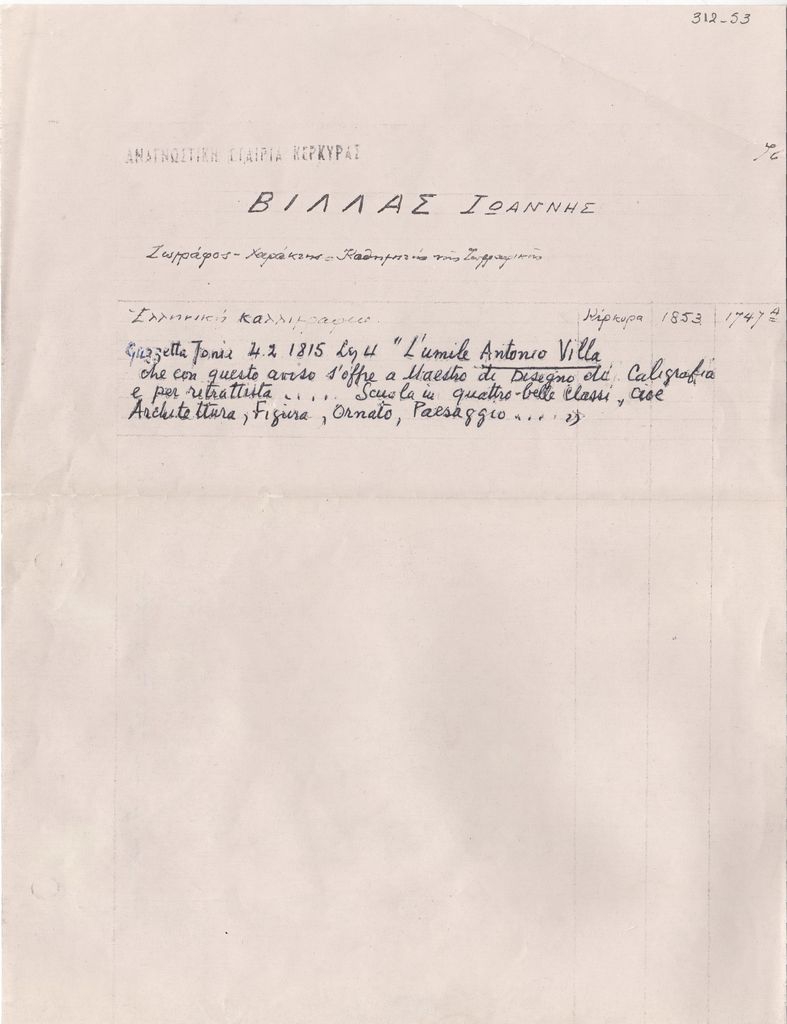 312-53
ΑΝΑΓΝΩΣΤΙΚΗ ΕΤΑΙΡΙΑ ΚΕΡΚΥΡΑΣ
ΒΙΛΛΑΣ ΙΩΑΝΝΗΣ
Ζωγράφος - Χαράκτης - Καθηγητής της Ζωγραφικής
Ελληνική καλλιγραφία. Κέρκυρα 1853 1747 Α
Gazzetta Jonia 4.2 1815 "L'umile Antonio Villa
che con questo aviso s'offre a Maestro di Disegno di Caligrafia
e per ritrattista ..... Scuola in quattro belle classi, cioè
Architettura, Figura, Ornato, Paesaggio .... "